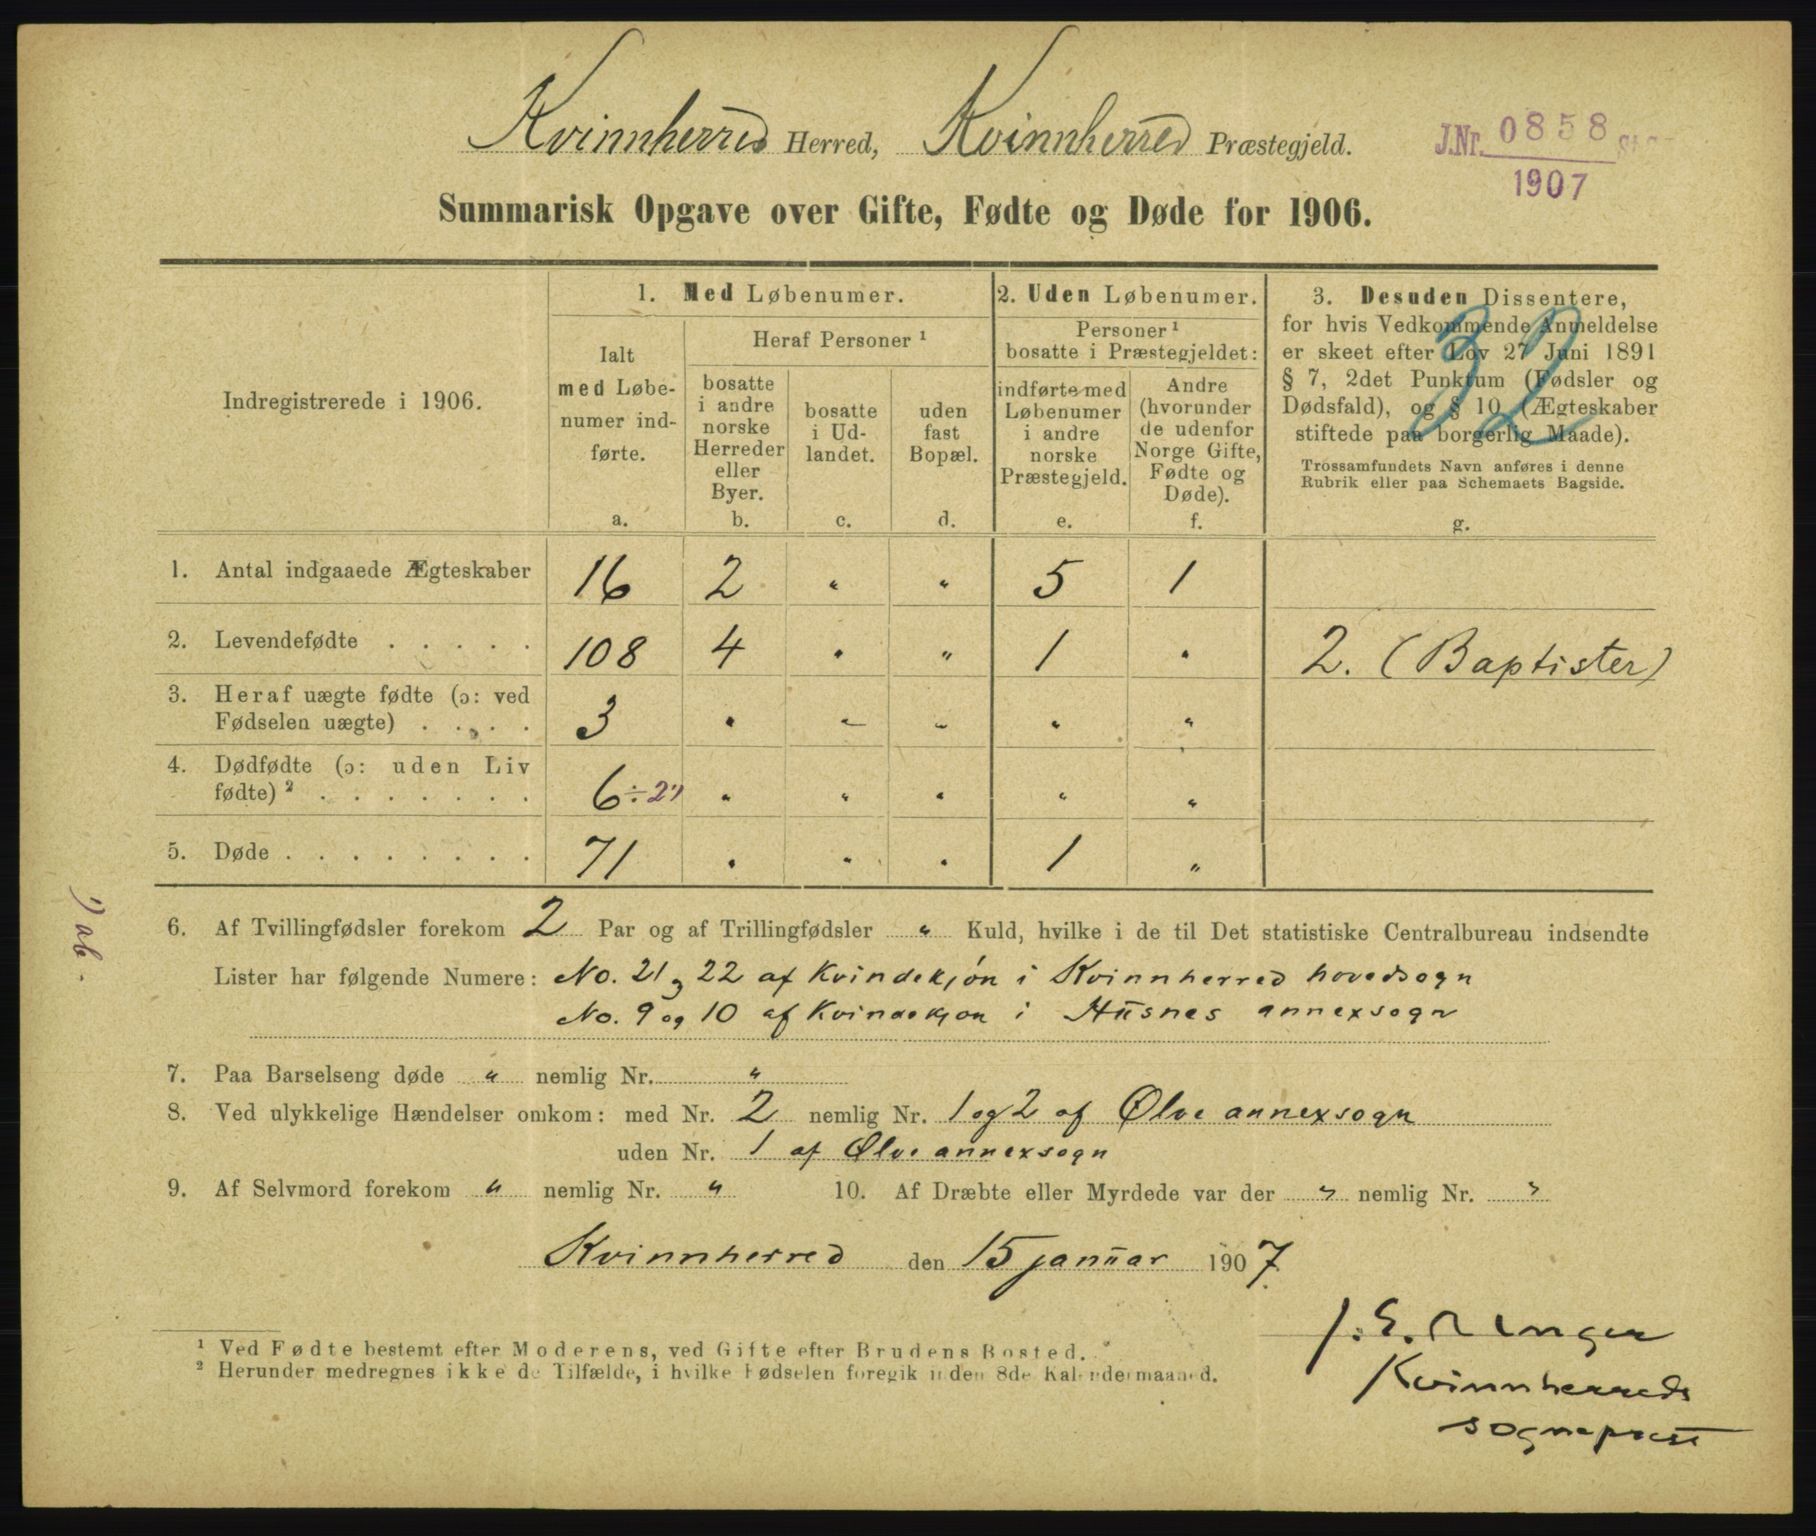 Kvinnherred Herred, Kvinnherred Præstegjeld.
J.Nr. 0858
1907
Summarisk Opgave over Gifte, Fødte og Døde for 1906.
Indregistrerede i 1906.
1. Med Løbenumer.
Ialt
med Løbe-
numer ind-
førte.
a.
Heraf Personer ¹
bosatte
i andre
norske
Herreder
eller
Byer.
b.
bosatte
i Ud-
landet.
c.
uden
fast
Bopæl.
d.
2. Uden Løbenumer.
Personer ¹
bosatte i Præstegjeldet:
indførte med
Løbenumer
i andre
norske
Præstegjeld.
e.
Andre
(hvorunder
de udenfor
Norge Gifte,
Fødte og
Døde).
f.
3. Desuden Dissentere,
for hvis Vedkommende Anmeldelse
er skeet efter Lov 27 Juni 1891
§ 7, 2det Punktum (Fødsler og
Dødsfald), og § 10 (Ægteskaber
stiftede paa borgerlig Maade).
Trossamfundets Navn anføres i denne
Rubrik eller paa Schemaets Bagside.
g.
32
1. Antal indgaaede Ægteskaber 16 2 " " 5 1
2. Levendefødte . . . . . 108 4 " " 1 " 2. (Baptister)
3. Heraf uægte fødte (ɔ: ved
Fødselen uægte) . . . . 3 " " " " "
4. Dødfødte (ɔ: uden Liv
fødte) ² . . . . . . . 6 ÷ 2 ¹) " " " " "
5. Døde . . . . . . . . 71 " " " 1 "
¹) ab.
6. Af Tvillingfødsler forekom 2 Par og af Trillingfødsler " Kuld, hvilke i de til Det statistiske Centralbureau indsendte
Lister har følgende Numere: No. 21 og 22 af Kvindekjøn i Kvinnherred hovedsogn
No. 9 og 10 af Kvindekjøn i Husnes annexsogn
7. Paa Barselseng døde " nemlig Nr. "
8. Ved ulykkelige Hændelser omkom: med Nr. 2 nemlig Nr. 1 og 2 af Ølve annexsogn
uden Nr. 1 af Ølve annexsogn
9. Af Selvmord forekom " nemlig Nr. " 10. Af Dræbte eller Myrdede var der " nemlig Nr. "
Kvinnherred den 15 januar 1907.
¹ Ved Fødte bestemt efter Moderens, ved Gifte efter Brudens Bosted.
² Herunder medregnes ikke de Tilfælde, i hvilke Fødselen foregik inden 8de Kalendermaaned.
J. E. Unger
Kvinnherreds
sogneprest